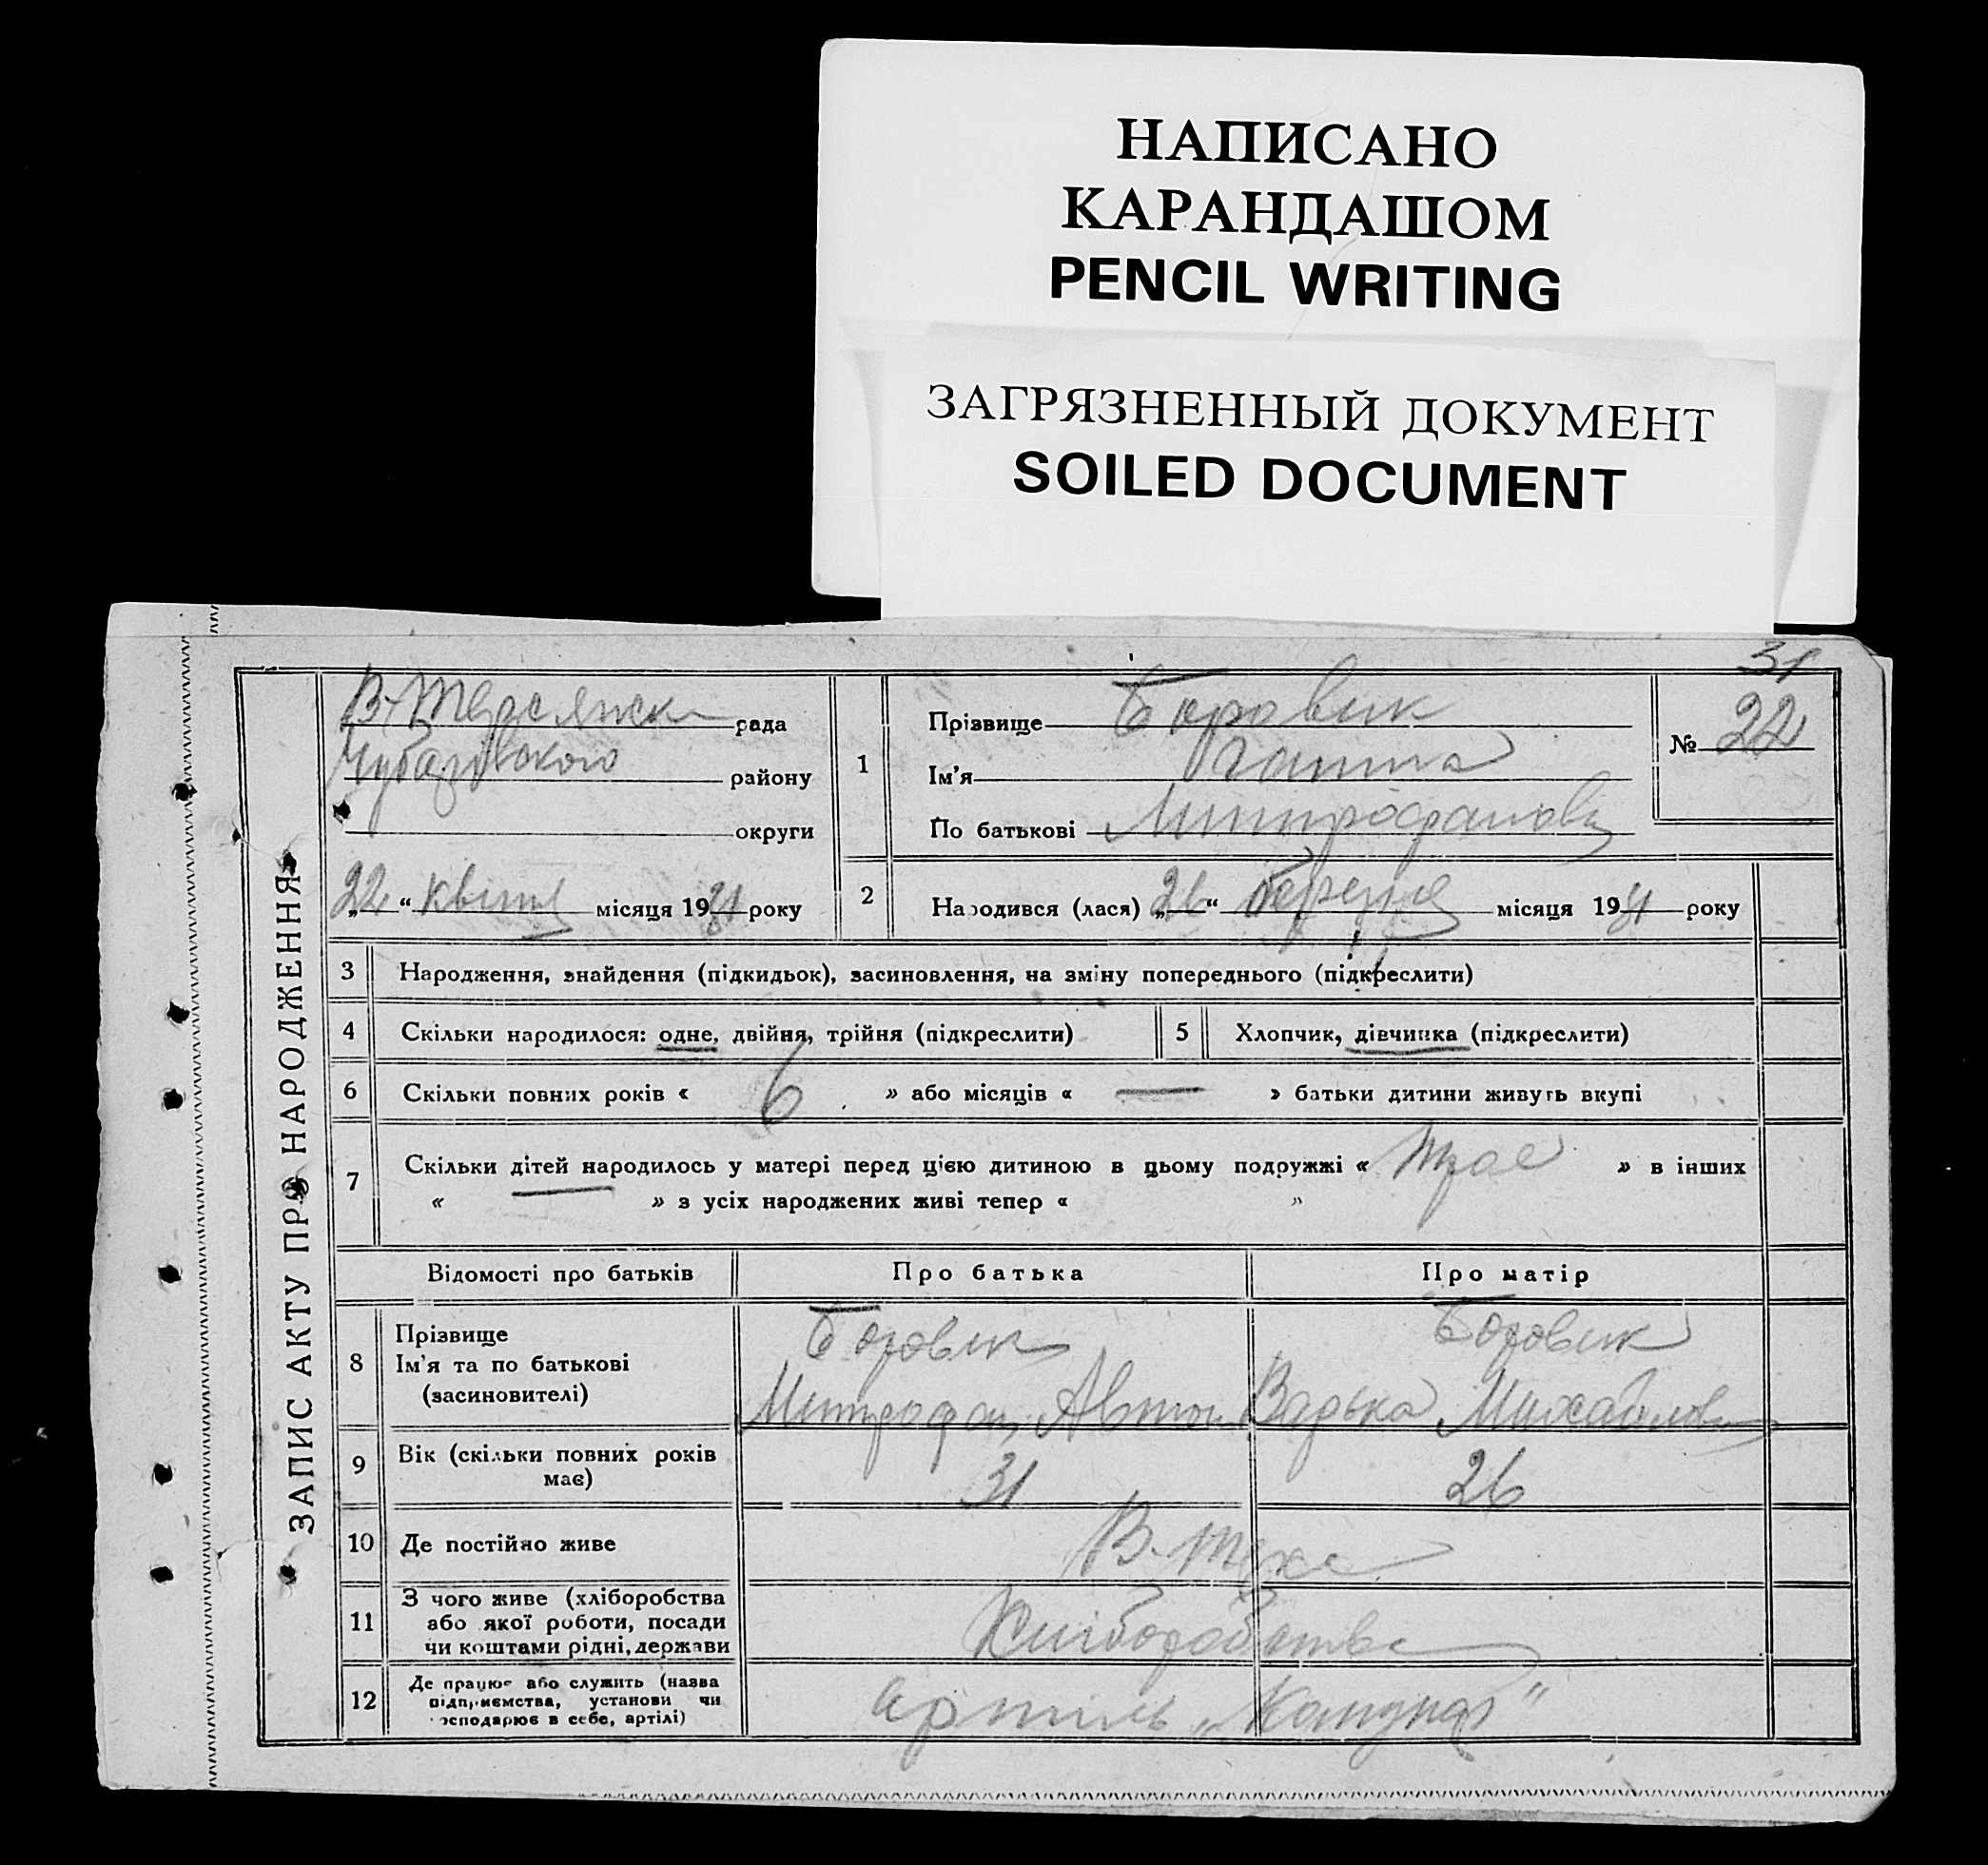 НАПИСАНО
КАРАНДАШОМ
PENCIL WRITING
ЗАГРЯЗНЕННЫЙ ДОКУМЕНТ
SOILED DOCUMENT
31
ЗАПИС АКТУ ПРО НАРОДЖЕННЯ
В-Терсянськ рада
Чубарівського району
округи
„22“ квітня місяця 1931 року
1
Прізвище Боровик
Ім'я Ганна
По батькові Митрофанов
№ 22
2 Народився (лася) „26“ березня місяця 1931 року
3 Народження, знайдення (підкидьок), засиновлення, на зміну попереднього (підкреслити)
4 Скільки народилося: одне, двійня, трійня (підкреслити) 5 Хлопчик, дівчинка (підкреслити)
6 Скільки повних років « 6 » або місяців « — » батьки дитини живуть вкупі
7 Скільки дітей народилось у матері перед цією дитиною в цьому подружжі « троє » в інших
« — » з усіх народжених живі тепер « »
Відомості про батьків Про батька Про матір
8 Прізвище Боровик Боровик
Ім'я та по батькові
(засиновителі) Митрофан Автон Варька Михайлов
9 Вік (скільки повних років
має) 31 26
10 Де постійно живе В-Терс
11 З чого живе (хліборобства
або якої роботи, посади
чи коштами рідні, держави Хліборобства
12 Де працює або служить (назва
підприємства, установи чи
господарює в себе, артілі) артиль „